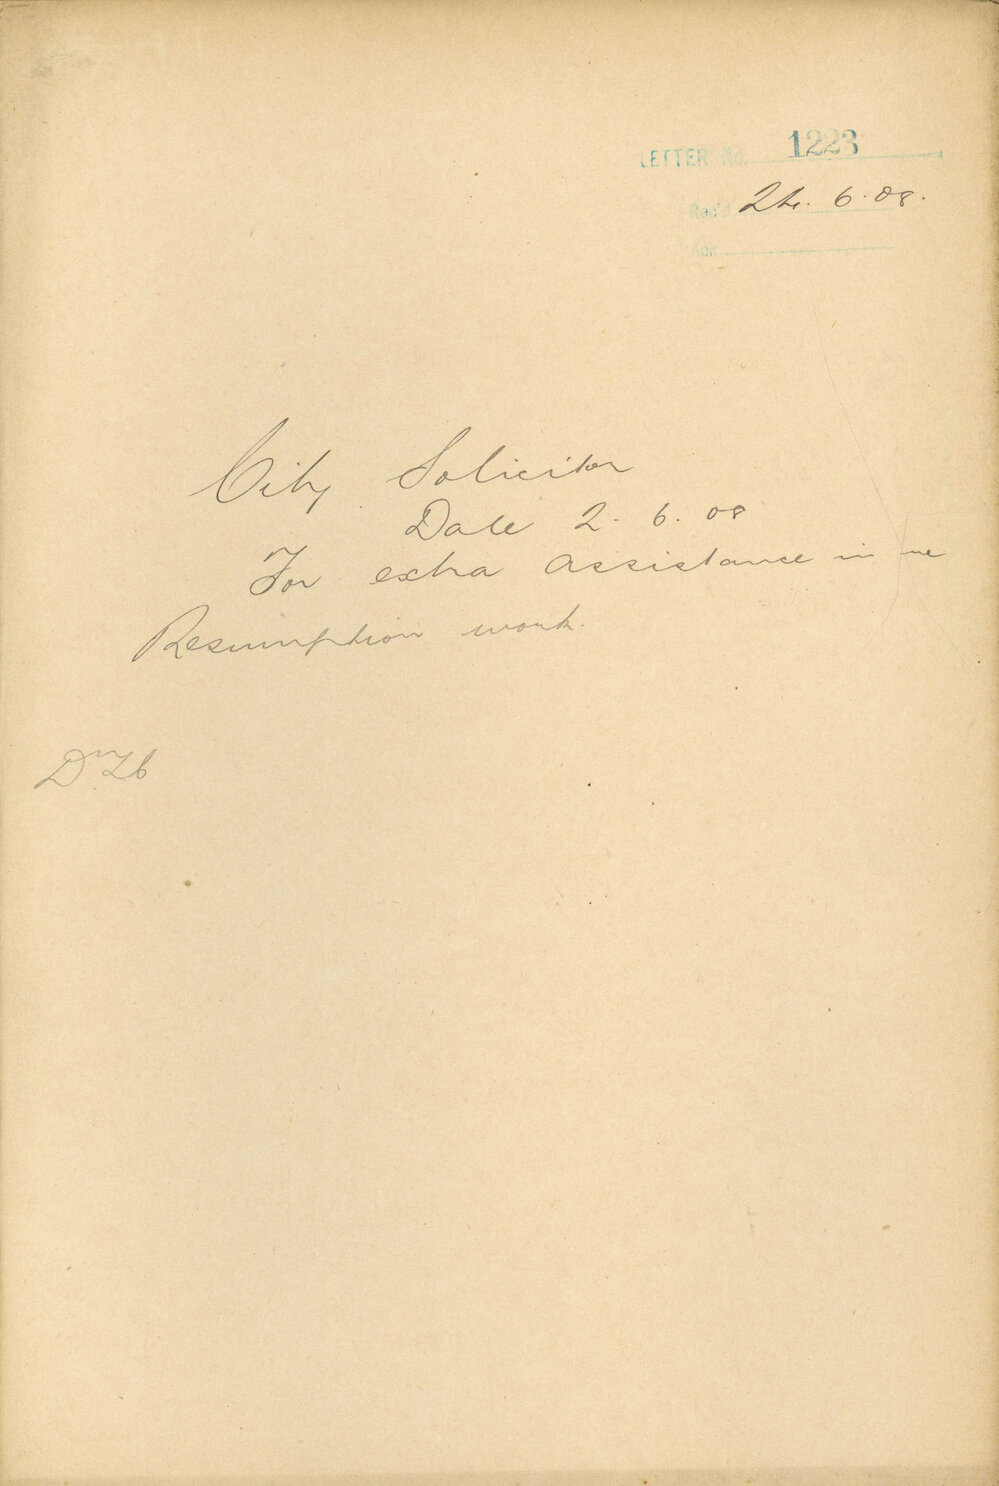 LETTER No. 1223
Rec'd 24. 6. 08.
Ack
City Solicitor
Date 2. 6. 08
For extra assistance in re
Resumption work.